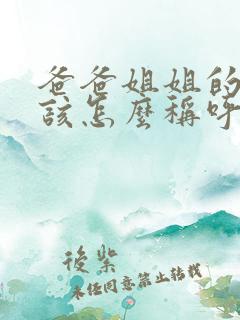 爸爸姐姐的
該怎麼稱呼
後柴
未经同意禁止转载